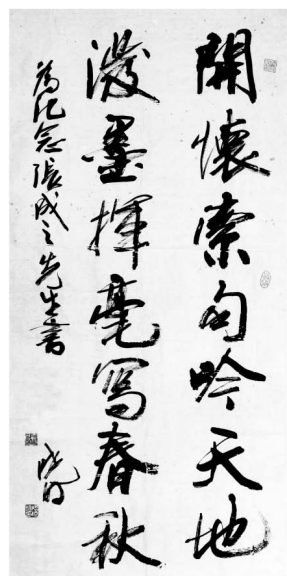 開懷索句吟天地
潑墨揮毫寫春秋
為紀念張成之先生書